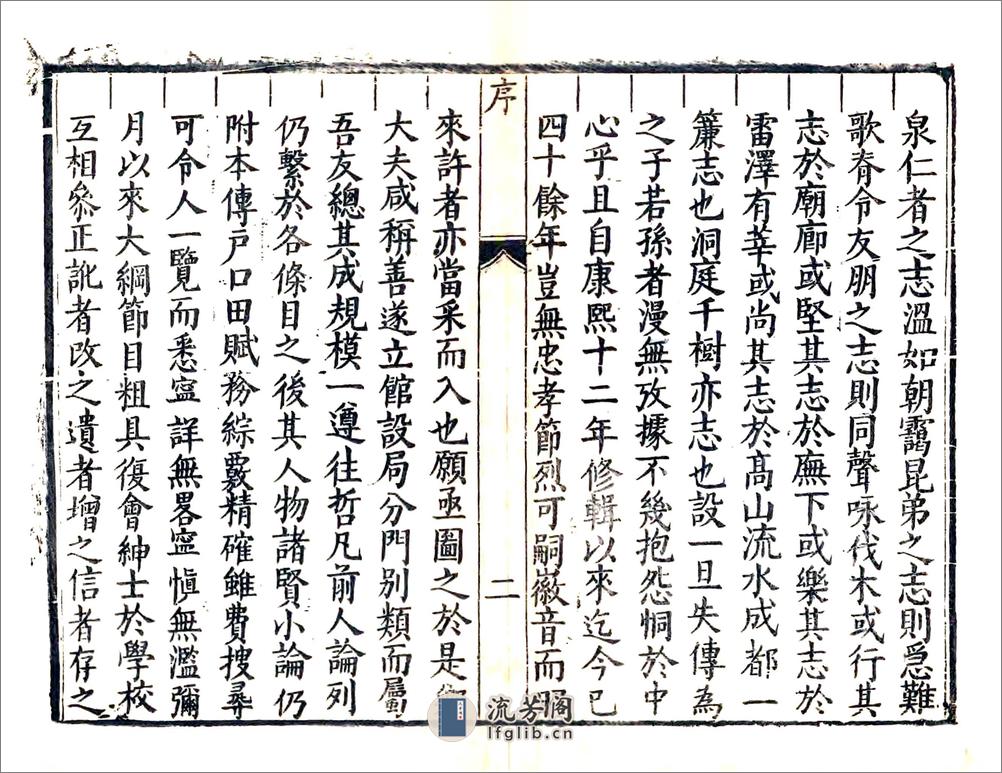 泉仁者之志溫如朝靄昆弟之志則急難
歌脊令友朋之志則同聲咏伐木或行其
志於廟廊或堅其志於廡下或樂其志於
雷澤有莘或尚其志於高山流水成都一
簾志也洞庭千樹亦志也設一旦失傳為
之子若孫者漫無攷據不幾抱怨恫於中
心乎且自康熙十二年修輯以來迄今已
四十餘年豈無忠孝節烈可嗣徽音而
序
二
來許者亦當采而入也願亟圖之於是
大夫咸稱善遂立館設局分門別類而屬
吾友總其成規模一遵往哲凡前人論列
仍繫於各條目之後其人物諸賢小論仍
附本傳戶口田賦務綜覈精確雖費搜尋
可令人一覽而悉寧詳無畧寧愼無濫彌
月以來大綱節目粗具復會紳士於學校
互相叅正訛者改之遺者增之信者存之
流芳阁
lfglib.cn